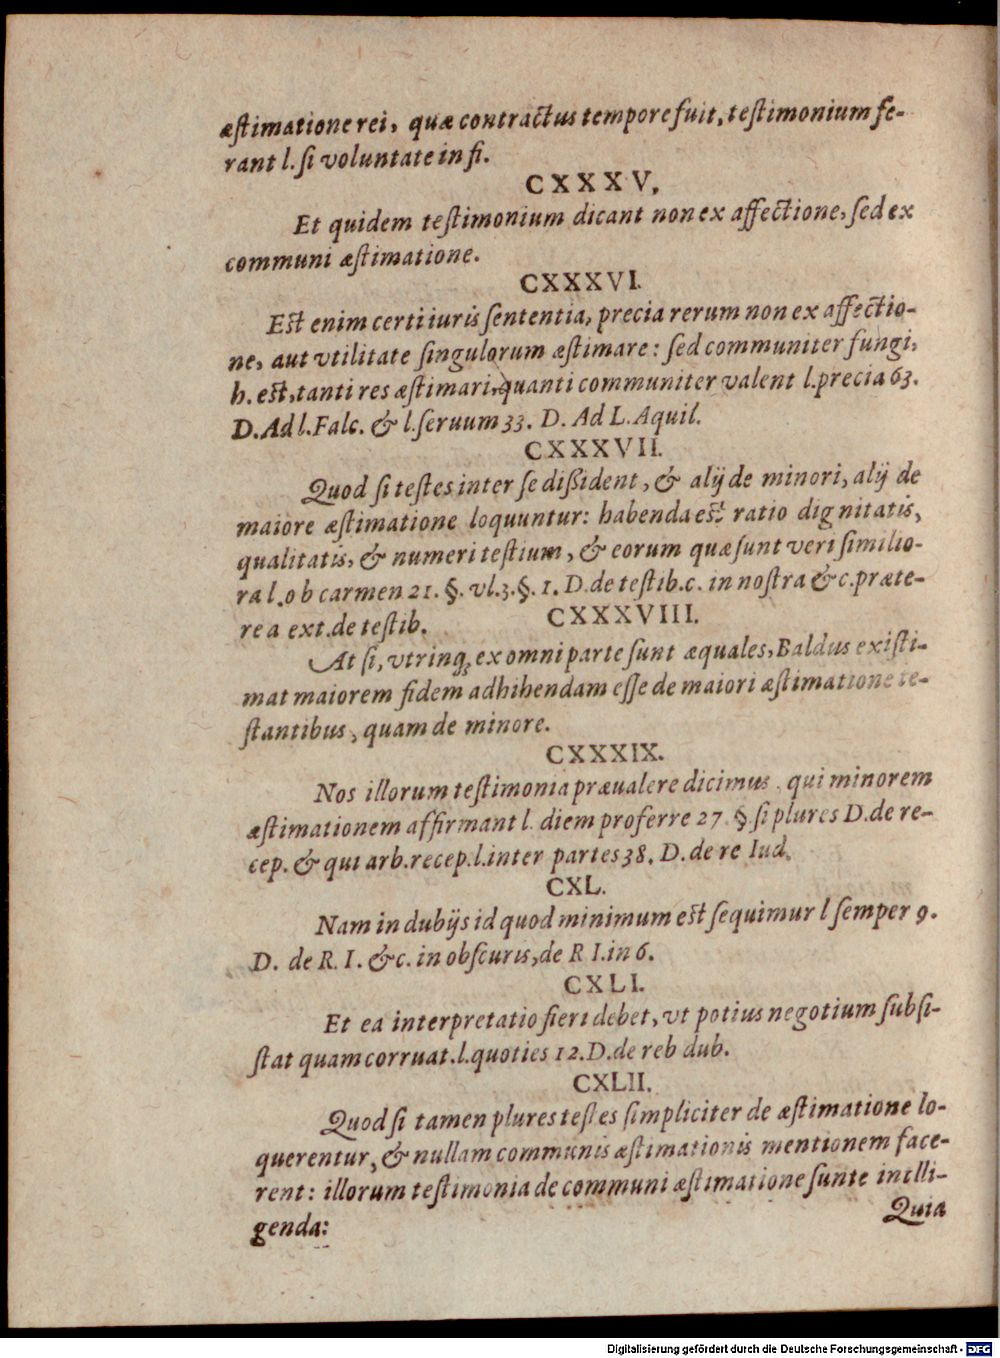 æſtimatione rei, quæ contractus tempore fuit, teſtimonium fe-
rant l. ſi voluntate in fi.
CXXXV,
Et quidem teſtimonium dicant non ex affectione, ſed ex
communi æſtimatione.
CXXXVI.
Eſt enim certi iuris ſententia, precia rerum non ex affectio-
ne, aut vtilitate ſingulorum æſtimare: ſed communiter fungi,
h. eſt, tanti res æſtimari, quanti communiter valent l. precia 63.
D. Ad l. Falc. & l. ſeruum 33. D. Ad L. Aquil.
CXXXVII.
Quod ſi teſtes inter ſe dißident, & alij de minori, alij de
maiore æſtimatione loquuntur: habenda eſt ratio dignitatis,
qualitatis, & numeri teſtium, & eorum quæ ſunt veri ſimilio-
ra l. ob carmen 21. §. vl. 3. §. 1. D. de teſtib. c. in noſtra & c. præte-
rea ext. de teſtib.
CXXXVIII.
At ſi, vtrinq; ex omni parte ſunt æquales, Baldus exiſti-
mat maiorem fidem adhihendam eſſe de maiori æſtimatione te-
ſtantibus, quam de minore.
CXXXIX.
Nos illorum teſtimonia præualere dicimus, qui minorem
æſtimationem affirmant l. diem proferre 27. §. ſi plures D. de re-
cep. & qui arb. recep. l. inter partes 38. D. de re Iud.
CXL.
Nam in dubijs id quod minimum eſt ſequimur l ſemper 9.
D. de R. I. & c. in obſcuris, de R I. in 6.
CXLI.
Et ea interpretatio fieri debet, vt potius negotium ſubſi-
ſtat quam corruat. l. quoties 12. D. de reb dub.
CXLII.
Quod ſi tamen plures teſtes ſimpliciter de æſtimatione lo-
querentur, & nullam communis æſtimationis mentionem face-
rent: illorum teſtimonia de communi æſtimatione ſunte intlli-
genda:
Quia
Digitalisierung gefördert durch die Deutsche Forschungsgemeinschaft - DFG